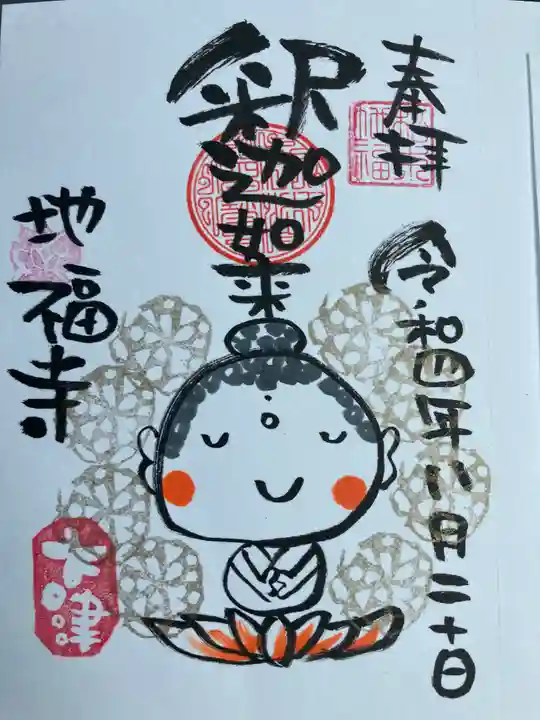 奉拝
令和四年八月二十日
釈迦如来
地福寺
大津